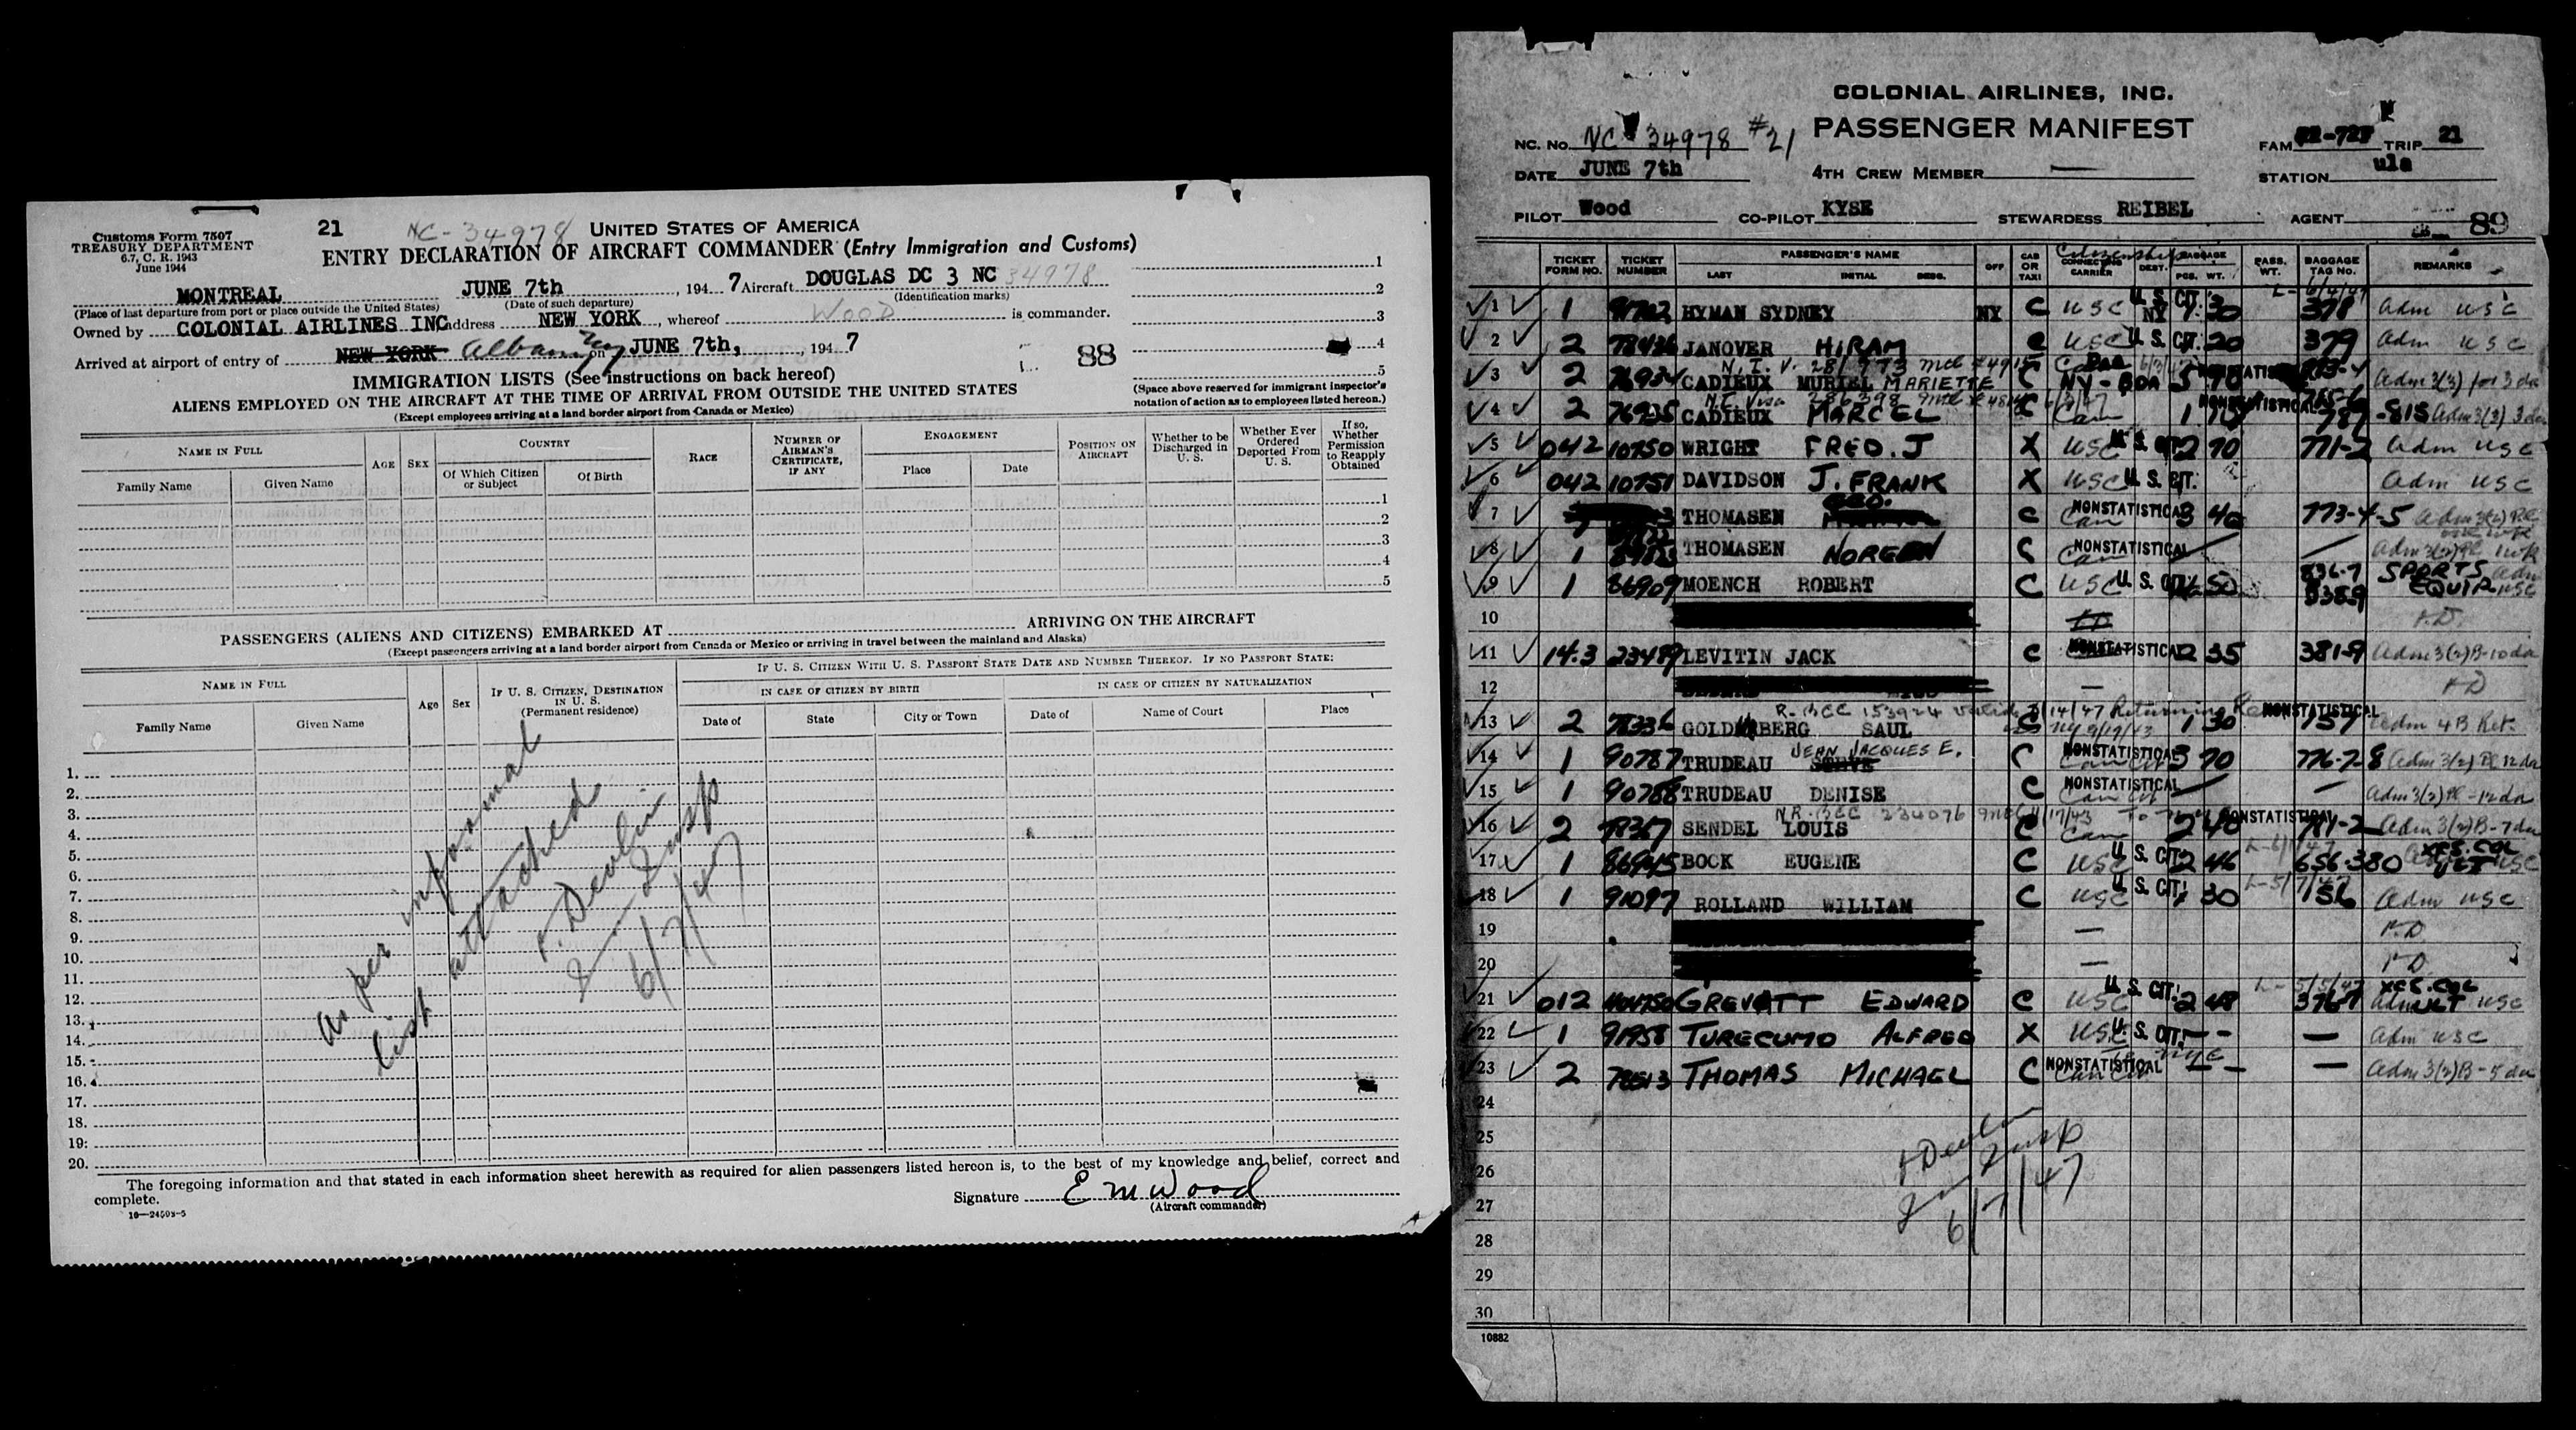 Customs Form 7507
TREASURY DEPARTMENT
6.7, C. R. 1943
June 1944
21
NC-34978 UNITED STATES OF AMERICA
ENTRY DECLARATION OF AIRCRAFT COMMANDER (Entry Immigration and Customs)
MONTREAL JUNE 7th, 194 7 Aircraft DOUGLAS DC 3 NC 34978
(Place of last departure from port or place outside the United States) (Date of such departure) (Identification marks)
Owned by COLONIAL AIRLINES INC address NEW YORK, whereof WOOD is commander.
Arrived at airport of entry of NEW YORK Albany NY on JUNE 7th, 194 7
88
1
2
3
4
5
(Space above reserved for immigrant inspector's notation of action as to employees listed hereon.)
IMMIGRATION LISTS (See instructions on back hereof)
ALIENS EMPLOYED ON THE AIRCRAFT AT THE TIME OF ARRIVAL FROM OUTSIDE THE UNITED STATES
(Except employees arriving at a land border airport from Canada or Mexico)
NAME IN FULL
Family Name Given Name
AGE SEX
COUNTRY
Of Which Citizen or Subject Of Birth
RACE
NUMBER OF AIRMAN'S CERTIFICATE, IF ANY
ENGAGEMENT
Place Date
POSITION ON AIRCRAFT
Whether to be Discharged in U. S.
Whether Ever Ordered Deported From U. S.
If so, Whether Permission to Reapply Obtained
1
2
3
4
5
PASSENGERS (ALIENS AND CITIZENS) EMBARKED AT ARRIVING ON THE AIRCRAFT
(Except passengers arriving at a land border airport from Canada or Mexico or arriving in travel between the mainland and Alaska)
NAME IN FULL
Family Name Given Name
Age Sex
IF U. S. CITIZEN, DESTINATION IN U. S. (Permanent residence)
IF U. S. CITIZEN WITH U. S. PASSPORT STATE DATE AND NUMBER THEREOF. IF NO PASSPORT STATE:
IN CASE OF CITIZEN BY BIRTH
Date of State City or Town
IN CASE OF CITIZEN BY NATURALIZATION
Date of Name of Court Place
1.
2.
3.
4.
5.
6.
7.
8.
9.
10.
11.
12.
13.
14.
15.
16.
17.
18.
19.
20.
As per informal
list attached
F. Devlin
Insp
6/7/47
The foregoing information and that stated in each information sheet herewith as required for alien passengers listed hereon is, to the best of my knowledge and belief, correct and
complete.
Signature E M Wood
(Aircraft commander)
16—24503-5
COLONIAL AIRLINES, INC.
PASSENGER MANIFEST
NC. NO. NC 34978 #21
FAM TRIP 21
DATE JUNE 7th 4TH CREW MEMBER — STATION ula
PILOT Wood CO-PILOT KYSE STEWARDESS REIBEL AGENT
89
TICKET FORM NO. TICKET NUMBER PASSENGER'S NAME LAST INITIAL DESG. OFF CAB OR TAXI Citizenship CONNECTING CARRIER DEST. BAGGAGE PCS. WT. PASS. WT. BAGGAGE TAG NO. REMARKS
1 1 HYMAN SYDNEY NY C USC U. S. CIT. NY 1 30 378 Adm USC
2 2 78436 JANOVER HIRAM C USC U. S. CIT. 20 379 Adm USC
N. I. V. 281973
3 2 76934 CADIEUX MURIEL MARIETTE C NY-BDA 5 70 Adm 3(3) for 3 da
N.I. Visa 286398
4 2 76935 CADIEUX MARCEL C Can 1 NONSTATISTICAL Adm 3(3) 3 da
5 042 10750 WRIGHT FRED. J X USC 2 70 771-2 Adm USC
6 042 10751 DAVIDSON J. FRANK X USC U. S. CIT. Adm USC
7 THOMASEN GEO. C Can NONSTATISTICAL 3 40 773-4-5
8 1 THOMASEN NOREEN C Can NONSTATISTICAL — Adm 3(2) Pl 1 wk
9 1 86909 MOENCH ROBERT C USC U. S. CIT. 50 836-7 8389 SPORTS EQUIP Adm USC
10
11 14.3 23489 LEVITIN JACK C NONSTATISTICAL 2 35 381-9 Adm 3(2)B-10da
12 —
13 2 78336 GOLDBERG SAUL C NONSTATISTICAL 1 30 157 Adm 4B Ret.
14 1 90787 TRUDEAU JEAN JACQUES E. C NONSTATISTICAL 3 70 776-7-8 Adm 3(2) Pl 12 da
15 1 90788 TRUDEAU DENISE C NONSTATISTICAL — Adm 3(2) Pl-12 da
16 2 78367 SENDEL LOUIS C Can NONSTATISTICAL 2 40 781-2 Adm 3(2)B-7 da
17 1 86945 BOCK EUGENE C USC U. S. CIT. 2 46 656-380 USC
18 1 91097 ROLLAND WILLIAM C USC U. S. CIT. 1 30 156 Adm USC
19 —
20 —
21 012 GREVATT EDWARD C USC U. S. CIT. 2 48 USC
22 1 91958 TURECUMO ALFRED X USC U. S. CIT. — — — Adm USC
23 2 78513 THOMAS MICHAEL C NONSTATISTICAL — — Adm 3(2)B-5 da
24
25
26
27
28
29
30
F Devlin
Insp
6/7/47
10882